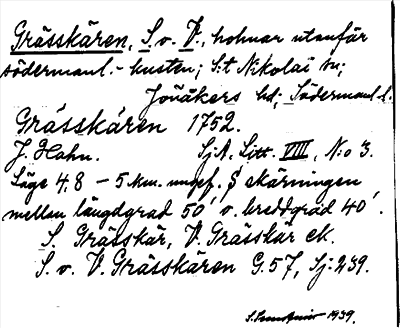 Grässkären, S. o. V., holmar utanför
södermanl.-kusten; S:t Nikolai sn;
Jönåkers hd; Södermanl. l.
Grässkären 1752.
J. Hahn. SjA. Litt. VIII, N:o 3.
Läge 4,8 – 5 km. ungef. S skärningen
mellan längdgrad 50' o. breddgrad 40'.
S. Grässkär, V. Grässkär ek.
S. o. V. Grässkären G. 57, Sj: 239.
1939.